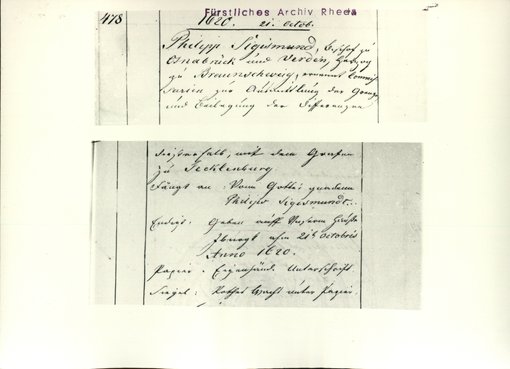 Fürstliches Archiv Rheda
478
1620. 21. Octob.
Philipp Sigismund, Bischof zu
Osnabrück und Verden, Herzog
zu Braunschweig, ernennt Commis-
sarien zur Ausmittlung der Grenze
und Beilegung der Differenzen
deshalb, mit dem Grafen
zu Tecklenburg.
Fängt an: Vonn Gottes gnaden
Philips Sigismundt.
Endigt: Geben auff Unserm Hauße
Iburgk ahm 21t Octobris
Anno 1620.
Papier. Eigenhänd. Unterschrift.
Siegel: Rothes Wachs unter Papier.